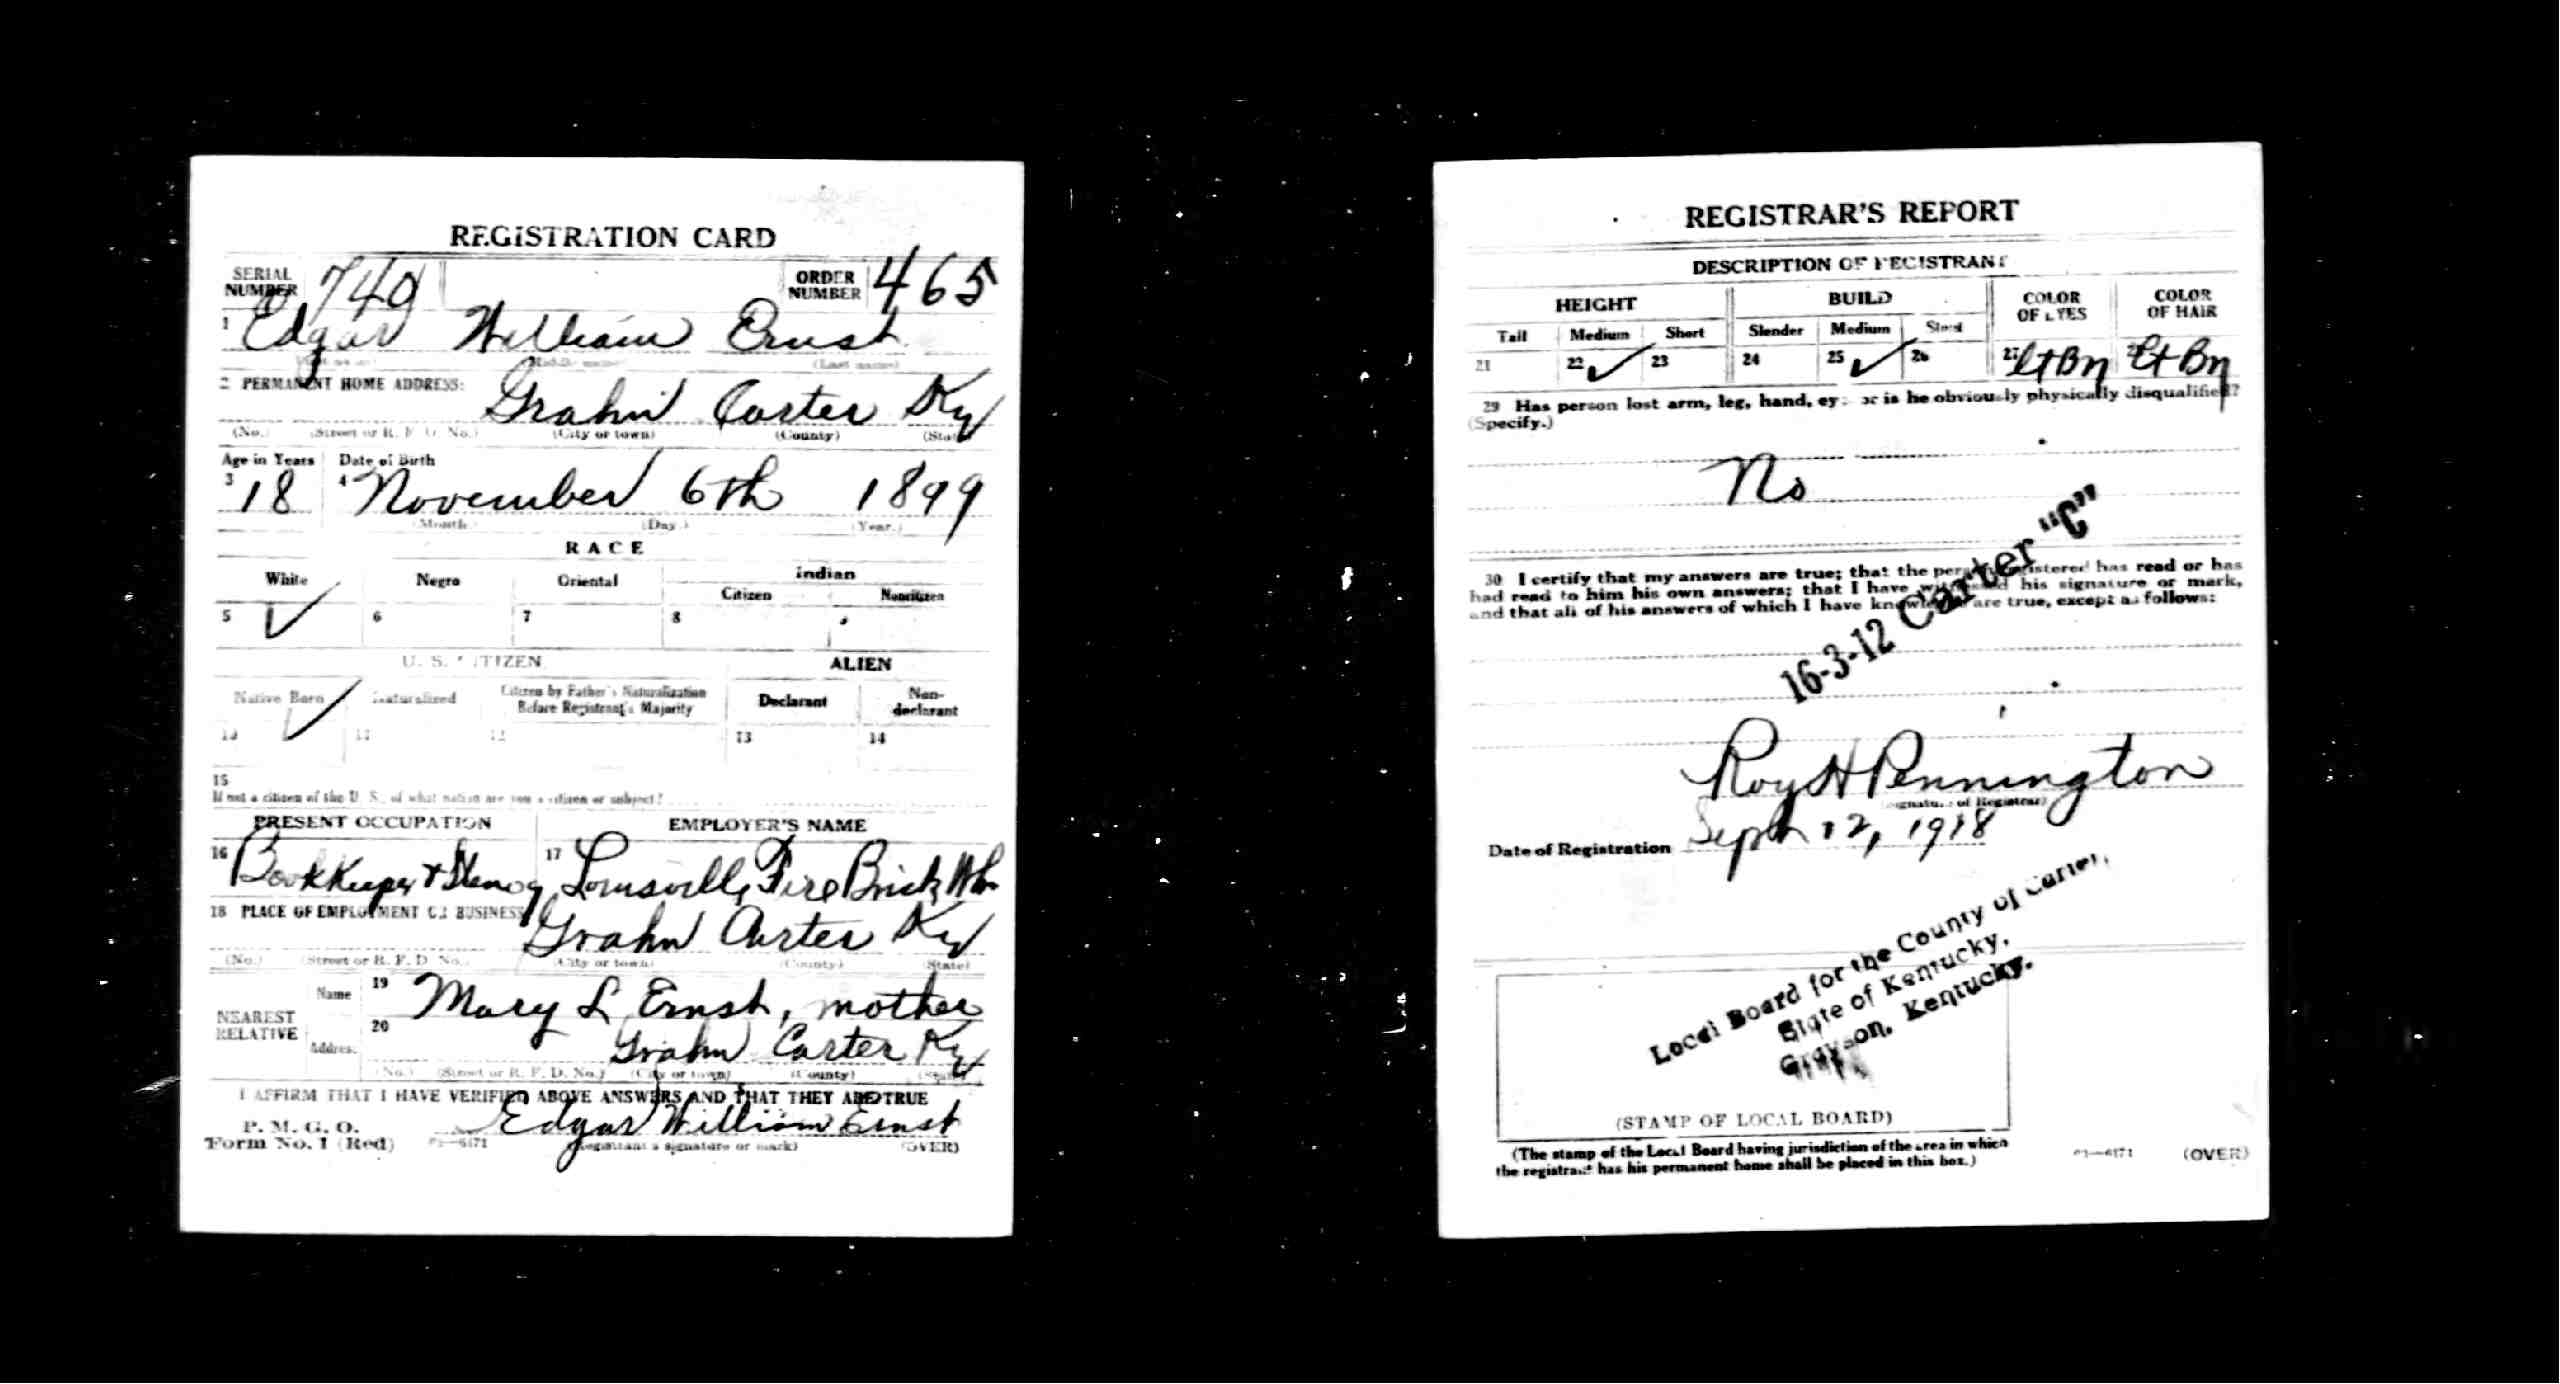 REGISTRATION CARD
SERIAL NUMBER 740 ORDER NUMBER 465
1 Edgar William Ernst
(Last name)
2 PERMANENT HOME ADDRESS: Grahn Carter Ky
(No.) (Street or R. F. D. No.) (City or town) (County) (State)
Age in Years Date of Birth
3 18 4 November 6th 1899
(Month.) (Day.) (Year.)
RACE
White Negro Oriental Indian
Citizen Noncitizen
5 ✓ 6 7 8
U. S. CITIZEN ALIEN
Native Born Naturalized Citizen by Father's Naturalization Before Registrant's Majority Declarant Non-declarant
10 ✓ 11 12 13 14
15
If not a citizen of the U. S., of what nation are you a citizen or subject?
PRESENT OCCUPATION EMPLOYER'S NAME
16 BookKeeper & Stenog 17 Louisville Fire Brick Wks
18 PLACE OF EMPLOYMENT OR BUSINESS
Grahn Carter Ky
(No.) (Street or R. F. D. No.) (City or town) (County) (State)
NEAREST RELATIVE
Name 19 Mary L Ernst, mother
Address 20 Grahn Carter Ky
(No.) (Street or R. F. D. No.) (City or town) (County) (State)
I AFFIRM THAT I HAVE VERIFIED ABOVE ANSWERS AND THAT THEY ARE TRUE
P. M. G. O.
Form No. 1 (Red) Edgar William Ernst
(Registrant's signature or mark) (OVER)
REGISTRAR'S REPORT
DESCRIPTION OF REGISTRANT
HEIGHT BUILD COLOR OF EYES COLOR OF HAIR
Tall Medium Short Slender Medium Stout
21 22 ✓ 23 24 25 ✓ 26 27 Lt Bn Lt Bn
29 Has person lost arm, leg, hand, eye, or is he obviously physically disqualified?
(Specify.)
No
16-3-12 Carter "C"
30 I certify that my answers are true; that the person registered has read or has
had read to him his own answers; that I have witnessed his signature or mark,
and that all of his answers of which I have knowledge are true, except as follows:
Roy H Pennington
(Signature of Registrar)
Date of Registration Sept 12, 1918
Local Board for the County of Carter,
State of Kentucky,
Grayson, Kentucky.
(STAMP OF LOCAL BOARD)
(The stamp of the Local Board having jurisdiction of the area in which
the registrant has his permanent home shall be placed in this box.)
(OVER)